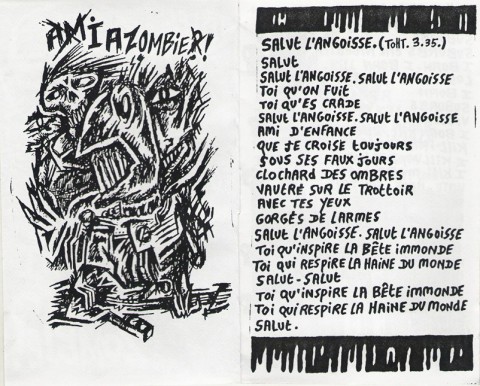 AMIAZOMBIER!
SALUT L'ANGOISSE. (TOHT. 3.35.)
SALUT
SALUT L'ANGOISSE. SALUT L'ANGOISSE
TOI QU'ON FUIT
TOI QU'ES CRADE
SALUT L'ANGOISSE. SALUT L'ANGOISSE
AMI D'ENFANCE
QUE JE CROISE TOUJOURS
SOUS SES FAUX JOURS
CLOCHARD DES OMBRES
VAUTRÉ SUR LE TROTTOIR
AVEC TES YEUX
GORGÉS DE LARMES
SALUT L'ANGOISSE. SALUT L'ANGOISSE
TOI QU'INSPIRE LA BÊTE IMMONDE
TOI QUI RESPIRE LA HAINE DU MONDE
SALUT - SALUT
TOI QU'INSPIRE LA BÊTE IMMONDE
TOI QUI RESPIRE LA HAINE DU MONDE
SALUT.